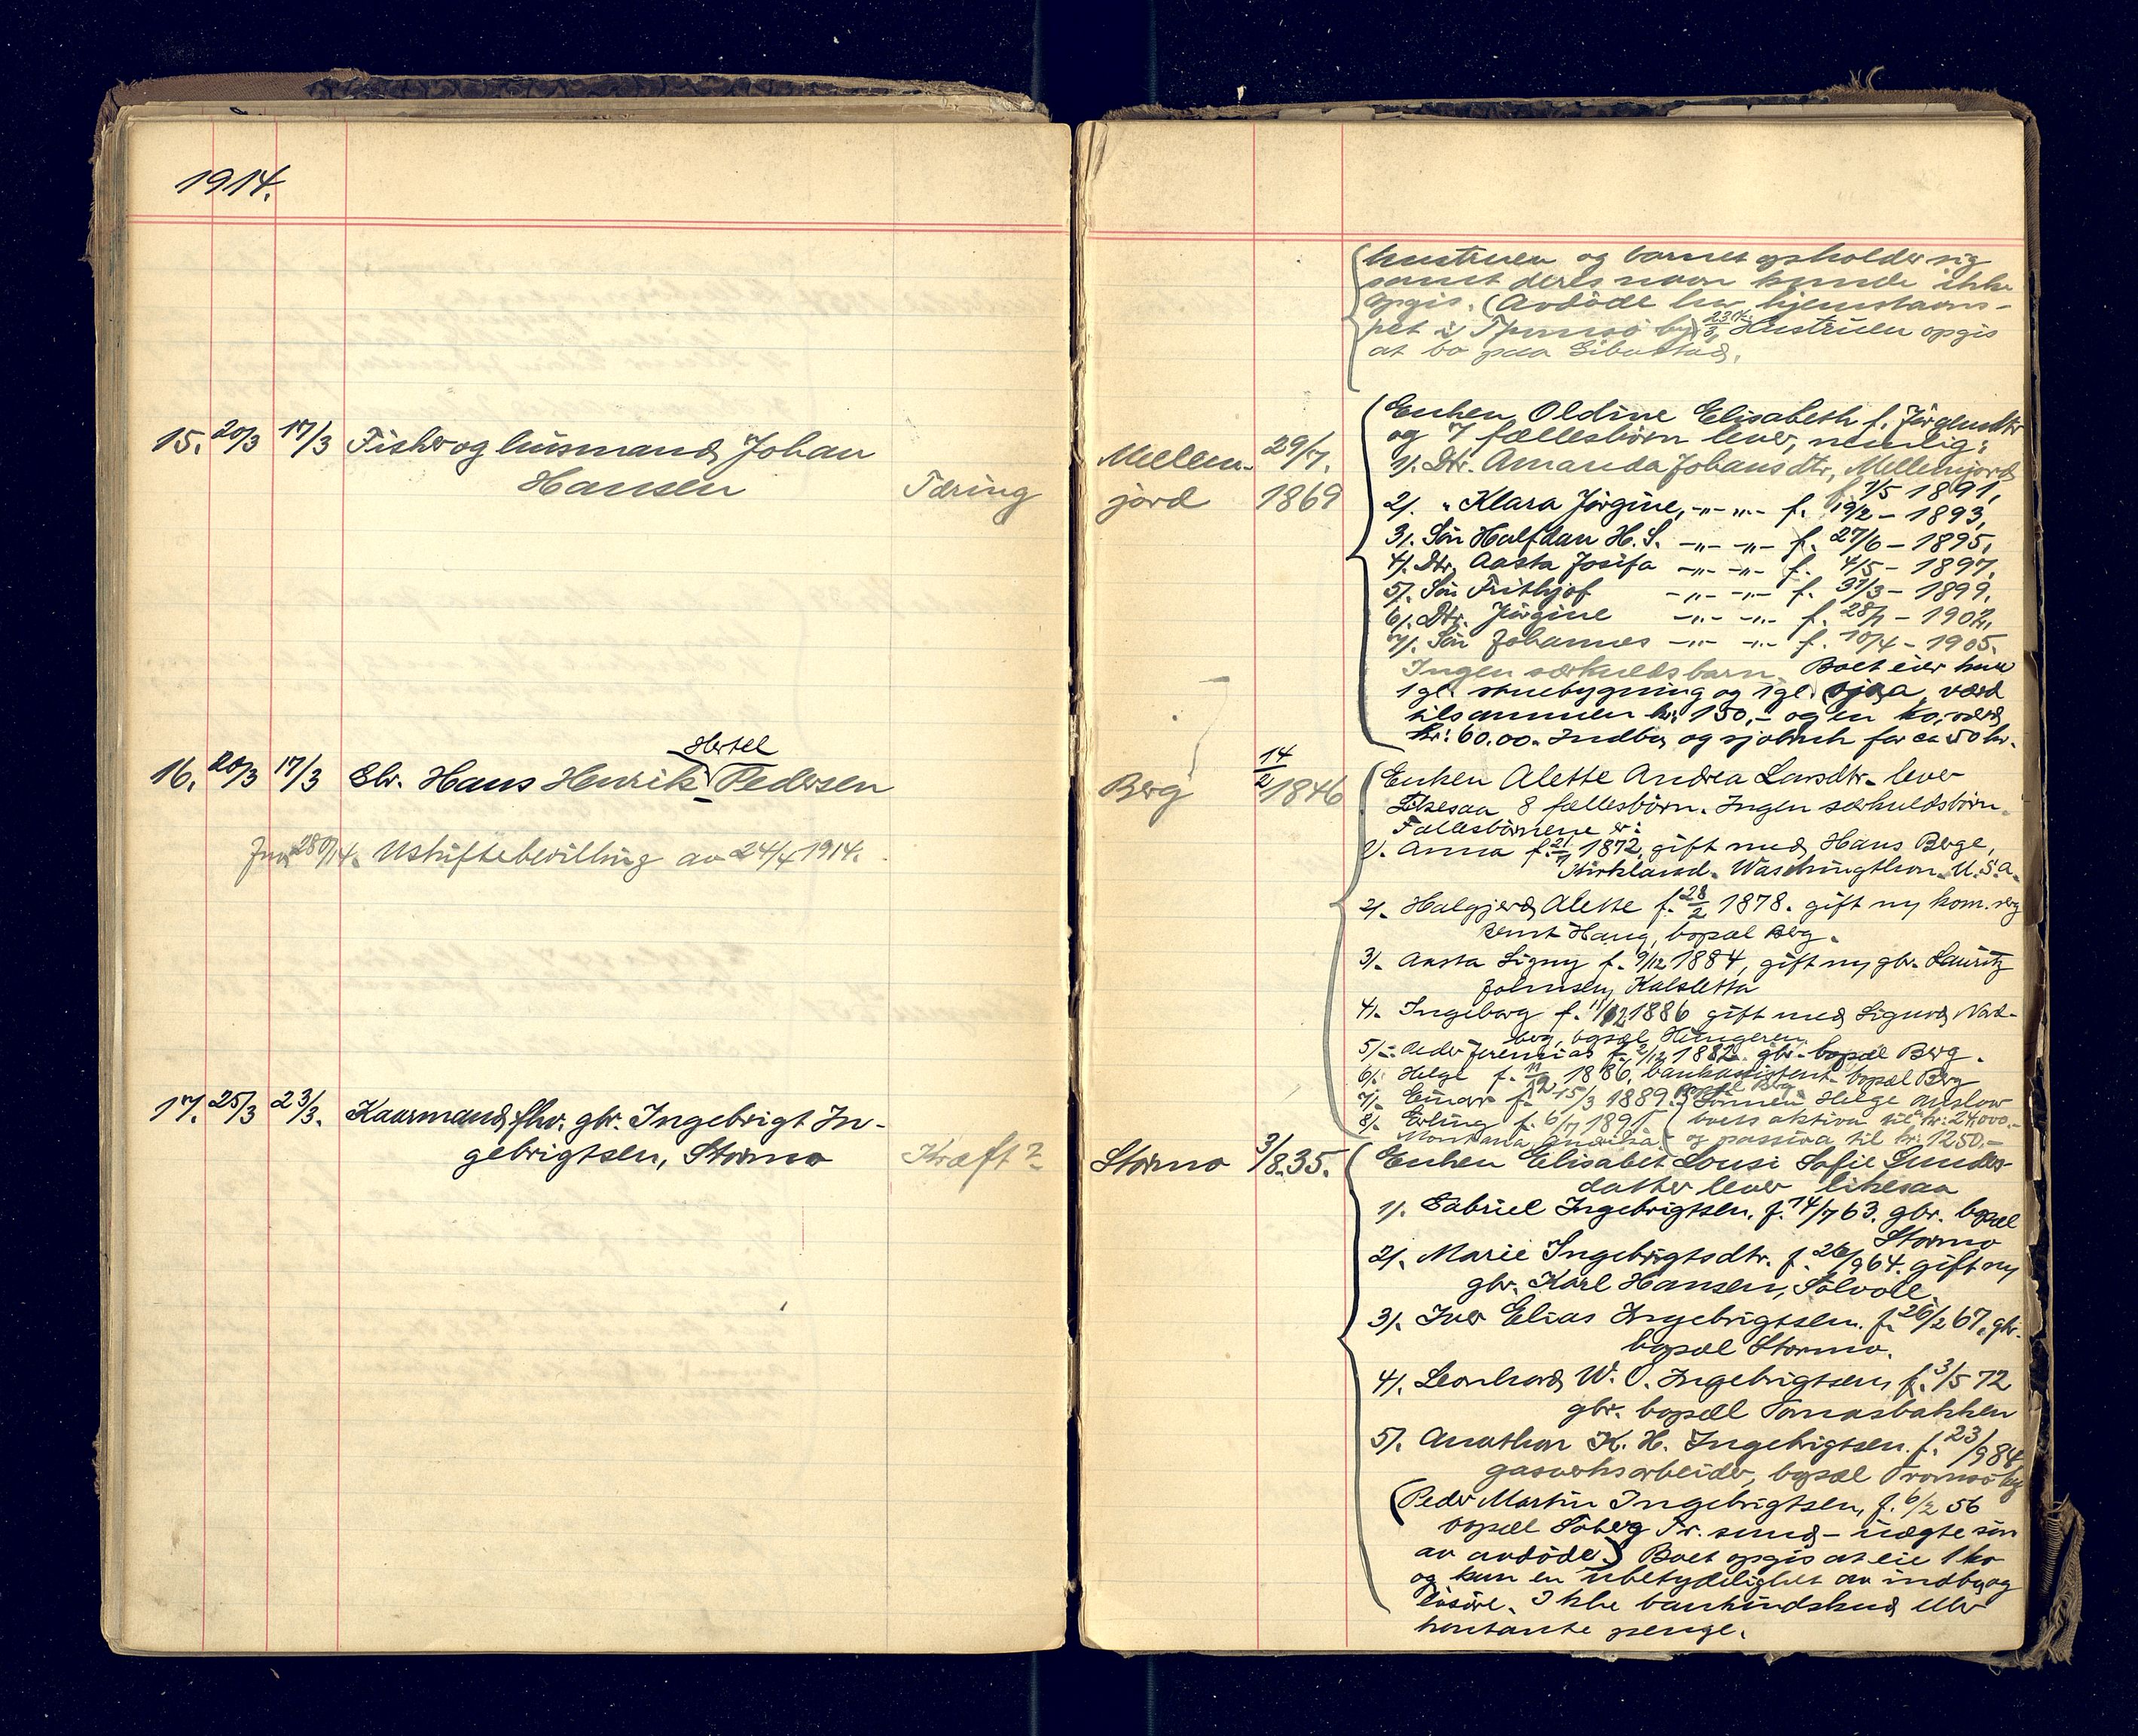 1914.
15. 20/3 17/3 Fisker og husmand Johan
Hansen Tæring
16. 20/3 17/3 Gbr. Hans Henrik Hertel Pedersen
Jnr. 280/14. Uskiftebevilling av 24/4 1914.
17. 25/3 23/3. Kaarmand fhv. gbr. Ingebrigt In-
gebrigtsen, Stormo Kræft?
hustruen og barnet opholder sig
samt deres navn kunde ikke
opgis. (Avdöde har hjemstavns-
ret i Tromsö by) Hustruen opgis
at bo paa Gibostad.
Mellem- 29/7.
jord 1869
Enken Oldine Elisabeth f. Jörgensdtr
og 7 fællesbörn lever, nemlig:
1/. Dtr. Amanda Johansdtr, Mellemjord
f. 1/5 1891,
2/. " Klara Jörgine, -"- -"- f. 19/2 - 1893,
3/. Sön Halfdan H. S. -"- -"- f. 27/6 - 1895,
4/. Dtr. Aasta Josifa -"- -"- f. 4/5 - 1897,
5/. Sön Frithjof -"- -"- f. 31/3 - 1899,
6/. Dtr. Jörgine -"- -"- f. 28/1 - 1902,
7/. Sön Johannes -"- -"- f. 10/4 - 1905.
Ingen særkuldsbarn. Boet eier kun
1 gl. stuebygning og 1 gl. sjaa, værd
tilsammen kr: 150,- og en ko, værd
kr: 60.00. Indbo og sjöbruk for ca 50 kr.
Berg 14/2 1846
Enken Alette Andrea Larsdtr. lever
Likesaa 8 fællesbörn. Ingen særkuldsbörn.
Fællesbörnene er:
1/. Anna f. 21/1 1872, gift med Hans Berge,
Kirkland. Waschingthon. U.S.A.
2/. Halgjerd Alette f. 28/2 1878. gift m/ kom. serg
Bernt Haug, bopæl Berg.
3/. Aasta Signy f. 9/12 1884, gift m/ gbr. Lauritz
Johnsen, Kalsletta
4/. Ingeborg f. 11/12 1886 gift med Sigurd Nord-
berg, bopæl Hungeren
5/. Peder Jeremias f. 2/12 1882. gbr. bopæl Berg.
6/. Helge f. 11/12 1886, bankassistent. bopæl Berg
7/. Einar f. 15/3 1889. bopæl Berg. Sönnen Helge anslaar
8/. Erling f. 6/7 1891. boets aktiva til kr: 24000.-
Montana, Amerika og passiva til kr: 1250.-
Stormo 3/8.35.
Enken Elisabet Lovise Sofie Gunders-
datter lever likesaa
1/. Gabriel Ingebrigtsen, f. 14/7 63. gbr. bopæl
Stormo
2/. Marie Ingebrigtsdtr. f. 26/9 64. gift m/
gbr. Karl Hansen, Solvoll.
3/. Iver Elias Ingebrigtsen. f. 26/2 67, gbr.
bopæl Stormo.
4/. Leonhard W. O. Ingebrigtsen, f. 3/5 72
gbr. bopæl Tomasbakken
5/. Anathon K. H. Ingebrigtsen. f. 23/9 84
gasverksarbeider, bopæl Tromsö by
(Peder Martin Ingebrigtsen, f. 6/2 56
bopæl Soberg Tr. sund - uægte sön
av avdöde.) Boet opgis at eie 1 ko
og kun en ubetydelighet av indbo og
lösöre. Ikke bankindskud eller
kontante penge.